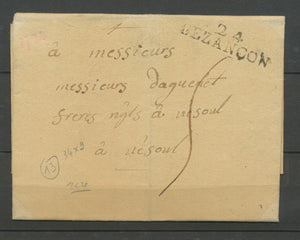 24
BEZANÇON
à messieurs
messieurs daguenet
freres ngts à vesoul
à vésoul
13
34x9